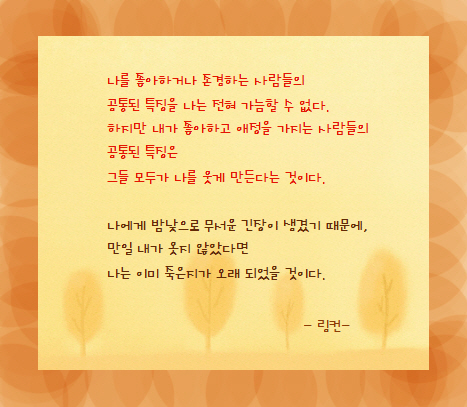 나를 좋아하거나 존경하는 사람들의
공통된 특징을 나는 전혀 가늠할 수 없다.
하지만 내가 좋아하고 애정을 가지는 사람들의
공통된 특징은
그들 모두가 나를 웃게 만든다는 것이다.
나에게 밤낮으로 무서운 긴장이 생겼기 때문에,
만일 내가 웃지 않았다면
나는 이미 죽은지가 오래 되었을 것이다.
- 링컨-